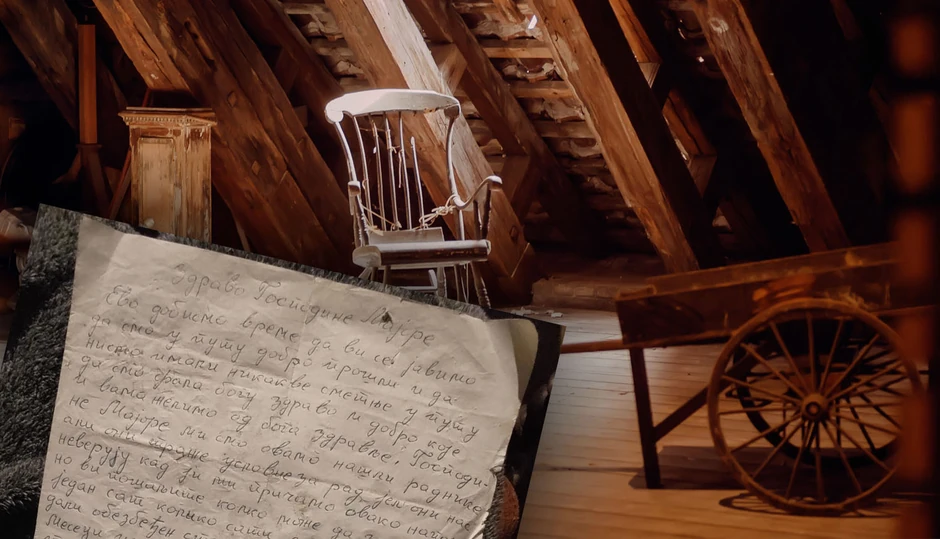 Здраво Господине Мајоре
Ево добисмо време да ви се јавимо
да смо у путу добро прошли и да
нисмо имали никакве сметње у путу
да смо фала богу здраво и добро које
и вама желимо од бога здравље, Господи-
не Мајоре ми смо овамо нашли раднике
али они траже услове за рад јел они нас
неверују кад ји ми причамо овако нап
но ви пошаљите колко може да
један сат колико сати
дали обезбеђен ст
месеци